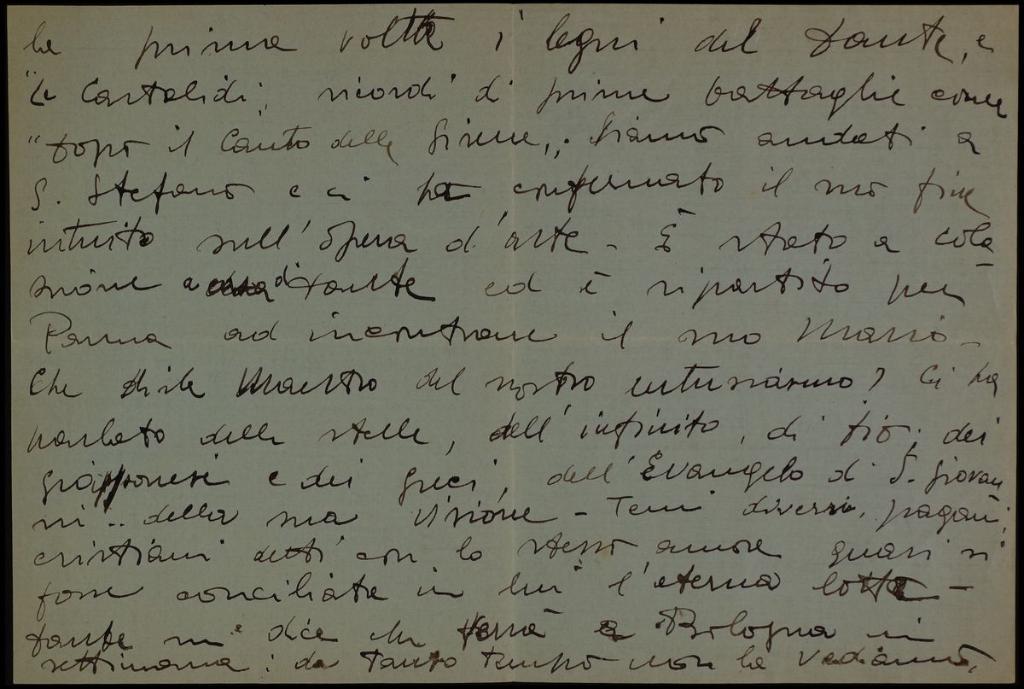 la prima volta i legni del Dante, e
"Le Castalidi, ricordi di prime battaglie come
"Dopo il Canto delle Sirene,,. Siamo andati a
S. Stefano e ci ha confermato il suo fine
intuito sull'opera d'arte - È stato a cola
zione a di Dante ed è ripartito per
Parma ad incontrare il suo Mario -
Che dirle Maestro del nostro entusiasmo? Ci ha
parlato delle stelle, dell'infinito, di Dio; dei
giapponesi e dei greci, dell'Evangelo di S. Giovan
ni.. della sua visione - Temi diversi, pagani,
cristiani detti con lo stesso amore quasi si
fosse conciliata in lui l'eterna lotta -
Dante mi dice che verrà a Bologna in
settimana: da tanto tempo non la vediamo,